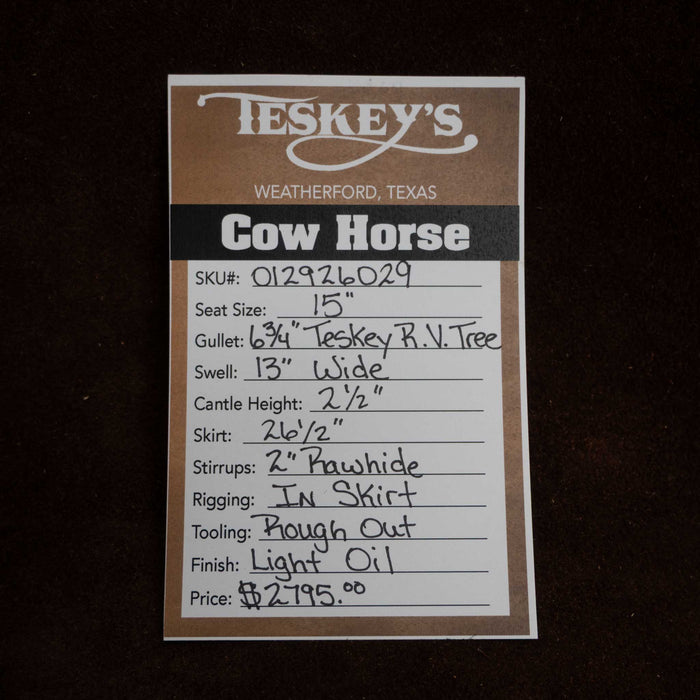 TESKEY'S
WEATHERFORD, TEXAS
Cow Horse
SKU#: 012926029
Seat Size: 15"
Gullet: 6 3/4" Teskey R.V. Tree
Swell: 13" Wide
Cantle Height: 2 1/2"
Skirt: 26 1/2"
Stirrups: 2" Rawhide
Rigging: In Skirt
Tooling: Rough Out
Finish: Light Oil
Price: $2795.00